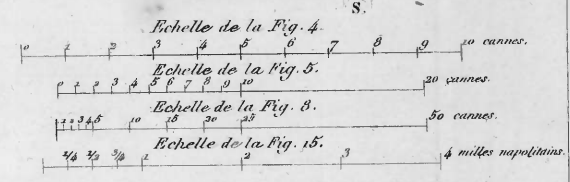 S.
Echelle de la Fig. 4.
0 1 2 3 4 5 6 7 8 9 10 cannes.
Echelle de la Fig. 5.
0 1 2 3 4 5 6 7 8 9 10 20 cannes.
Echelle de la Fig. 8.
1 2 3 4 5 10 15 20 25 50 cannes.
Echelle de la Fig. 15.
1/4 1/2 3/4 1 2 3 4 milles napolitains.